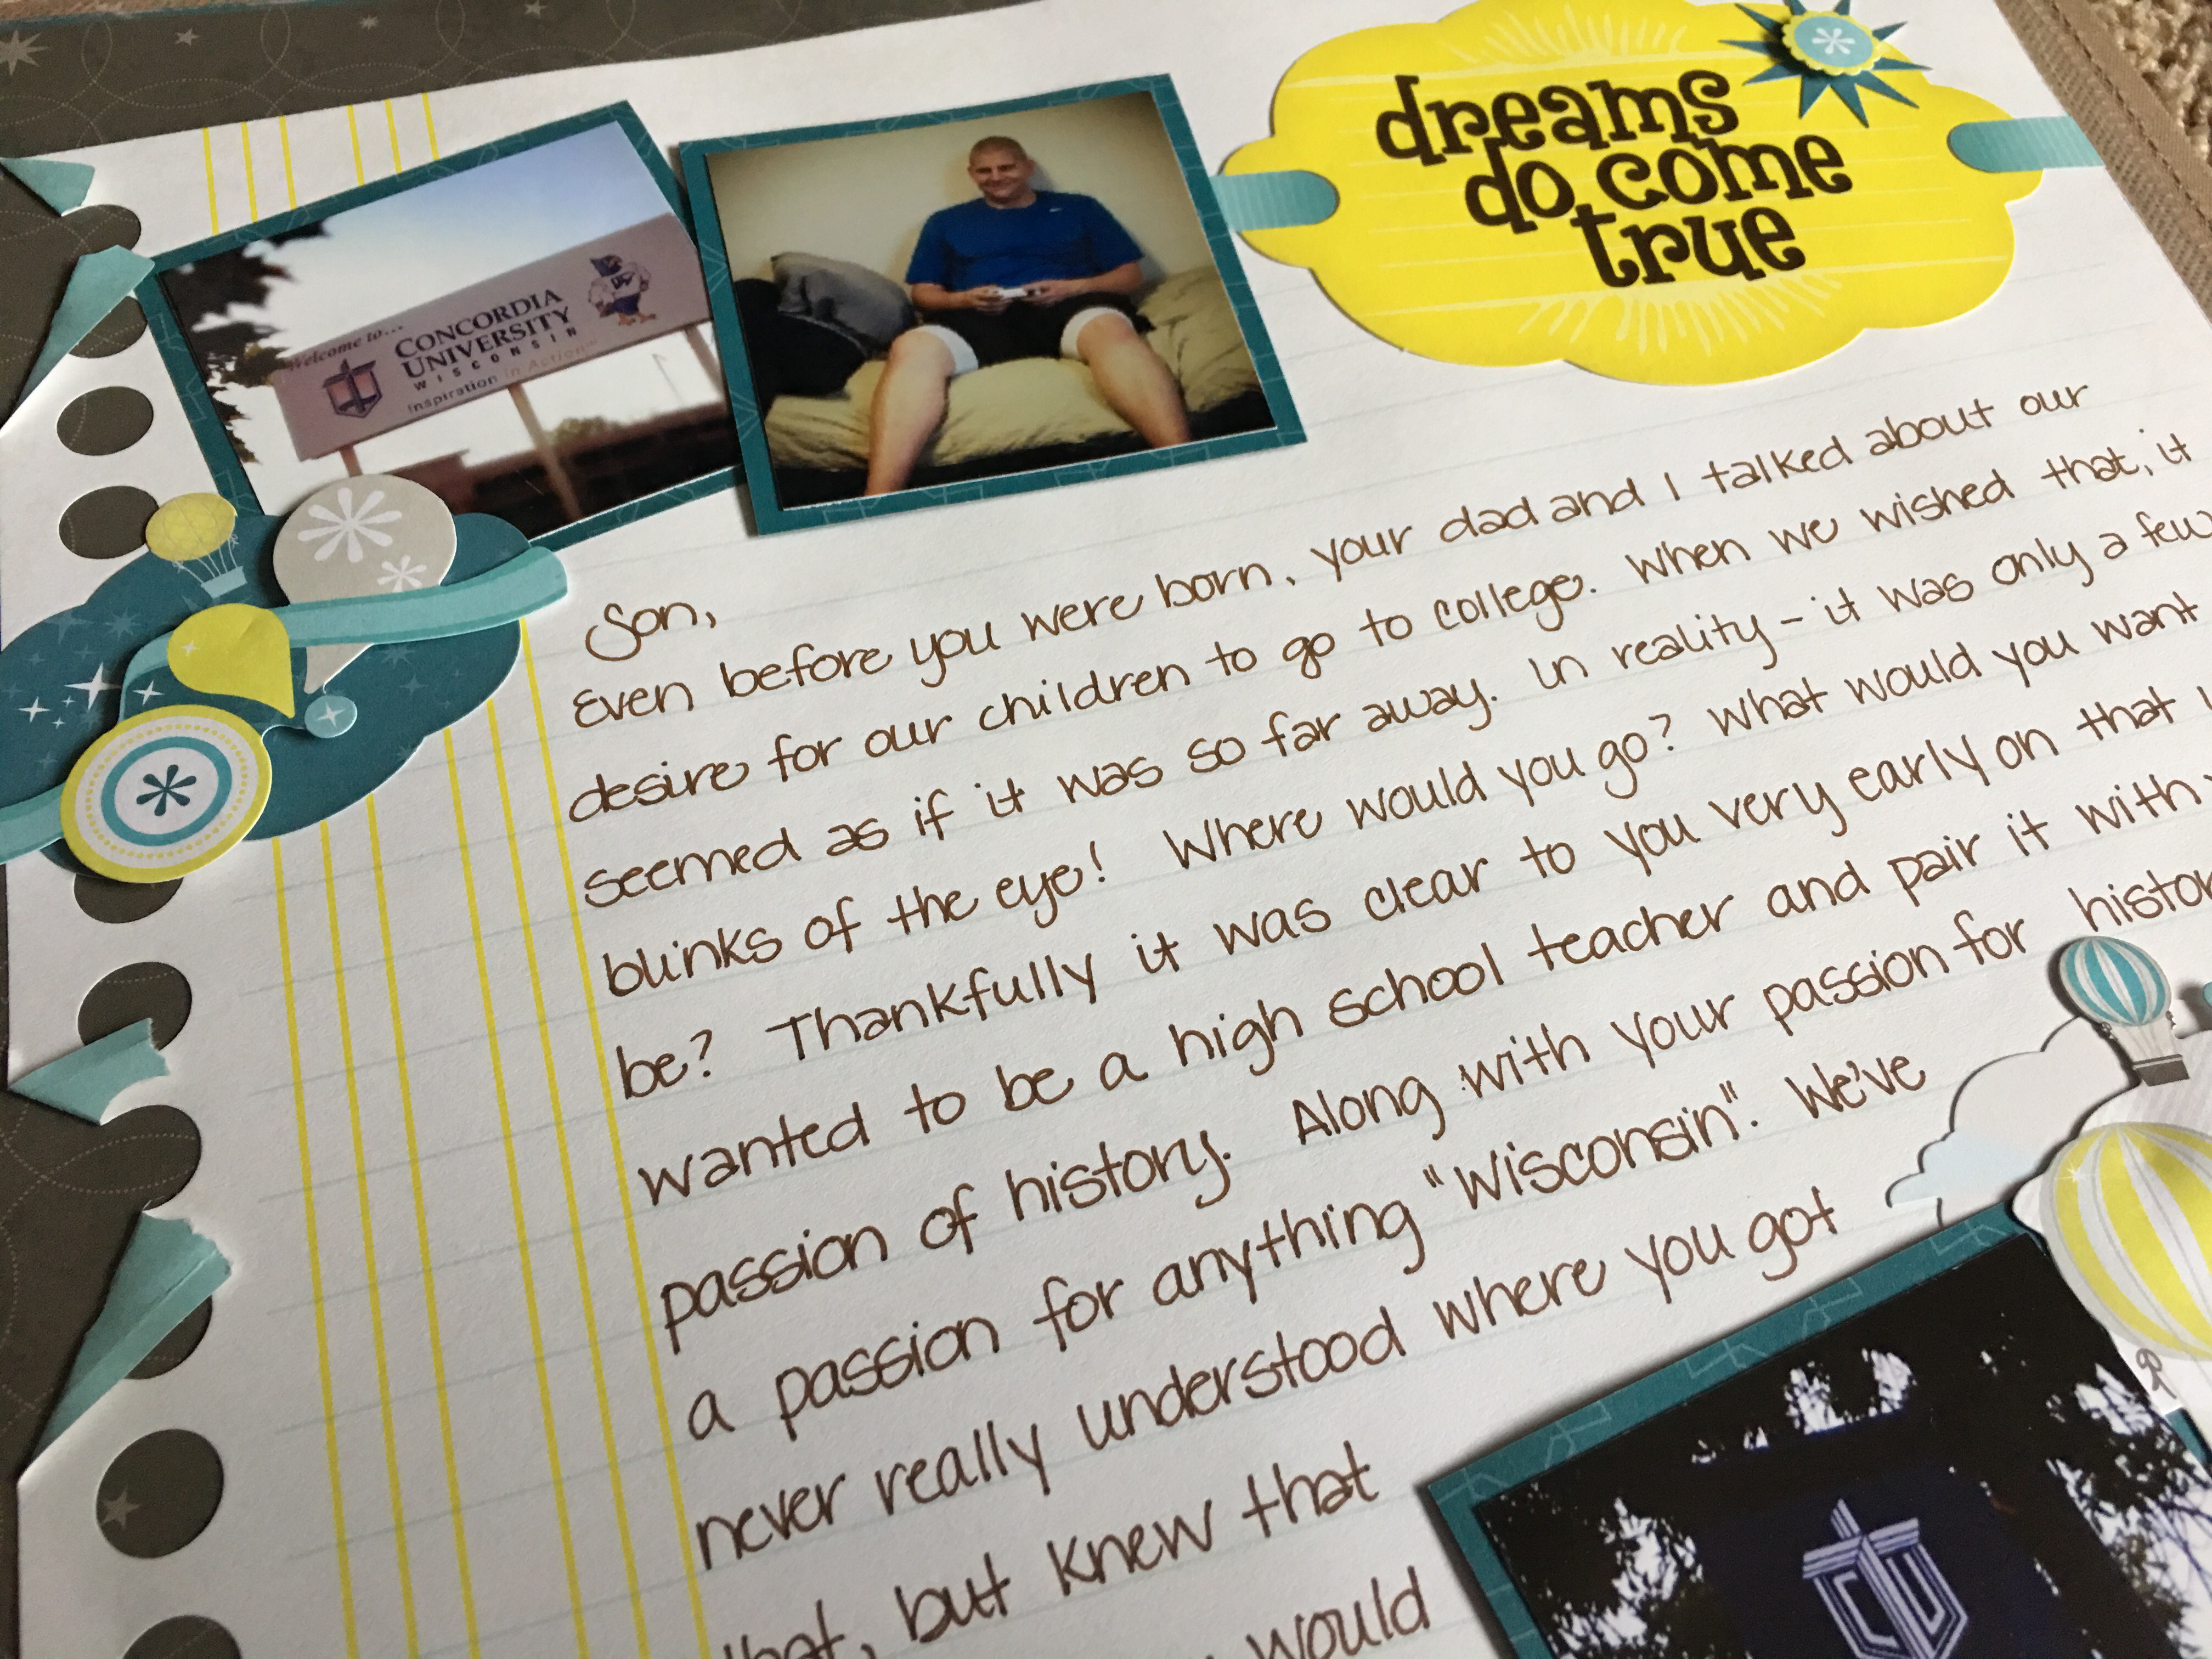 dreams
do come
true
Welcome to...
CONCORDIA
UNIVERSITY
WISCONSIN
Inspiration in Action
Son,
Even before you were born, your dad and I talked about our
desire for our children to go to college. When we wished that, it
seemed as if it was so far away. In reality - it was only a few
blinks of the eye! Where would you go? What would you want
be? Thankfully it was clear to you very early on that
wanted to be a high school teacher and pair it with
passion of history. Along with your passion for
a passion for anything "Wisconsin". We've
never really understood where you got
that, but knew that
would
CU